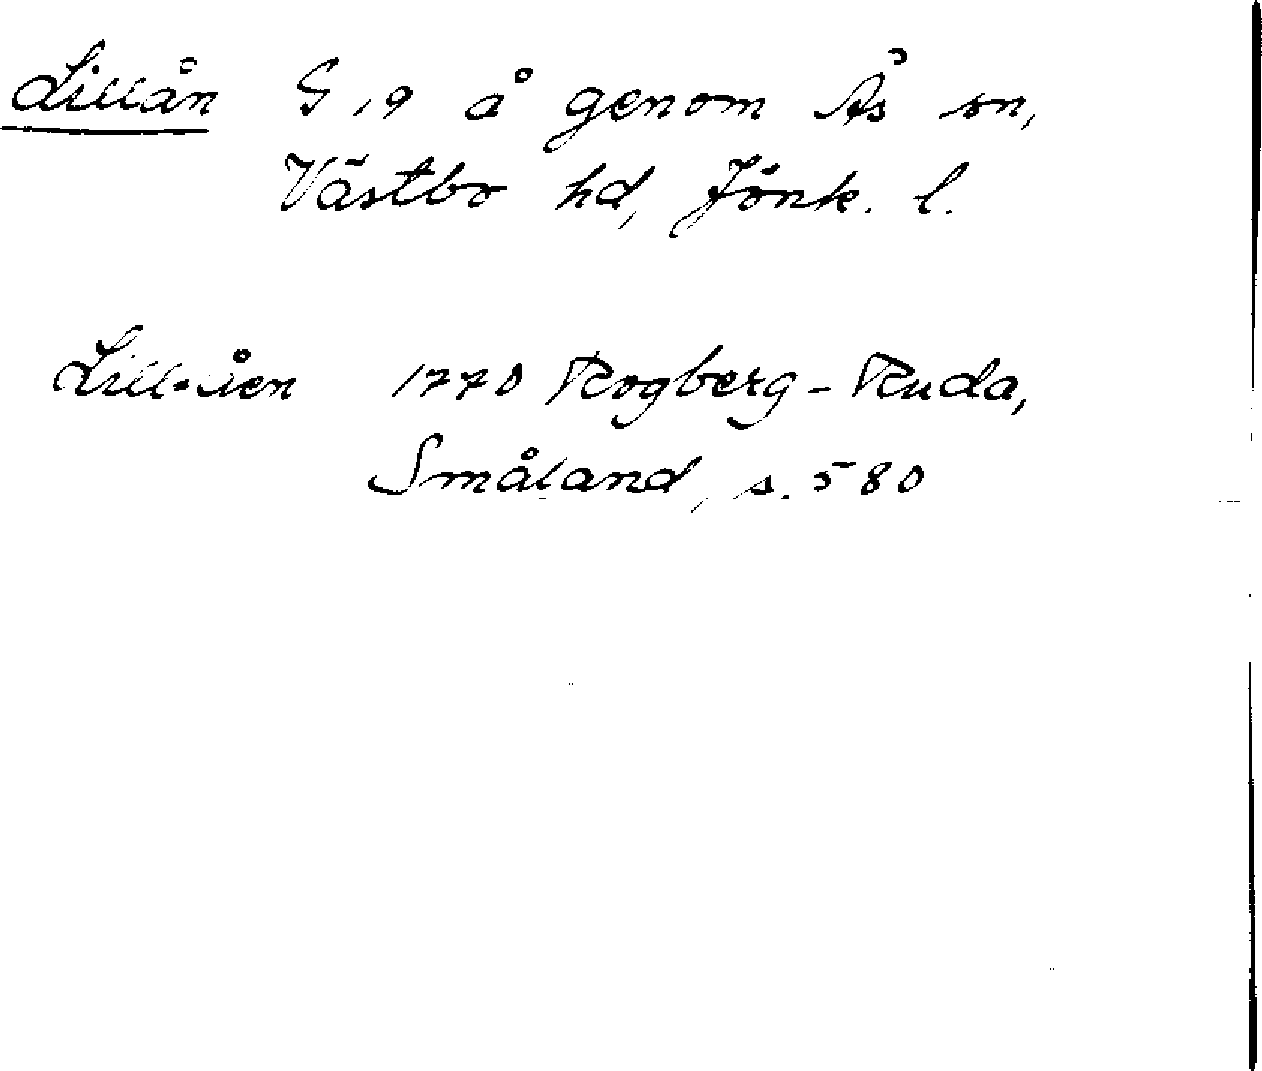 Lillån G,9 å genom Ås sn,
Västbo hd, Jönk. l.
Lill-åen 1770 Rogberg-Ruda,
Småland, s. 580